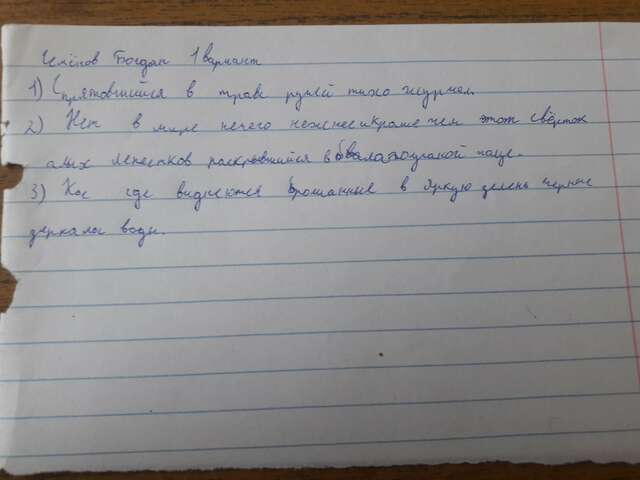 Богдан 1 вариант
1) Спрятовшийся в траве ручей тихо журчем.
2) Нет в мире нечего нежнее и краше чем этот свёрток
алых лепестков раскрывшийся в
3) Кое где виднеются брошанные в яркую зелень черные
зеркала воды.